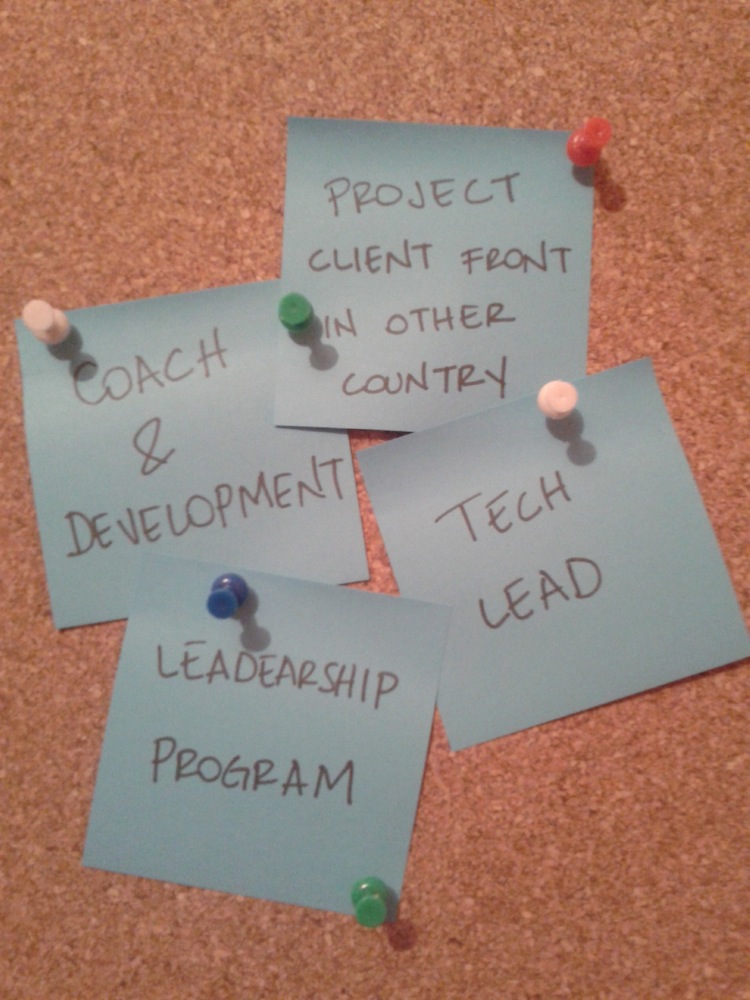 PROJECT
CLIENT FRONT
IN OTHER
COUNTRY
COACH
&
DEVELOPMENT
TECH
LEAD
LEADEARSHIP
PROGRAM